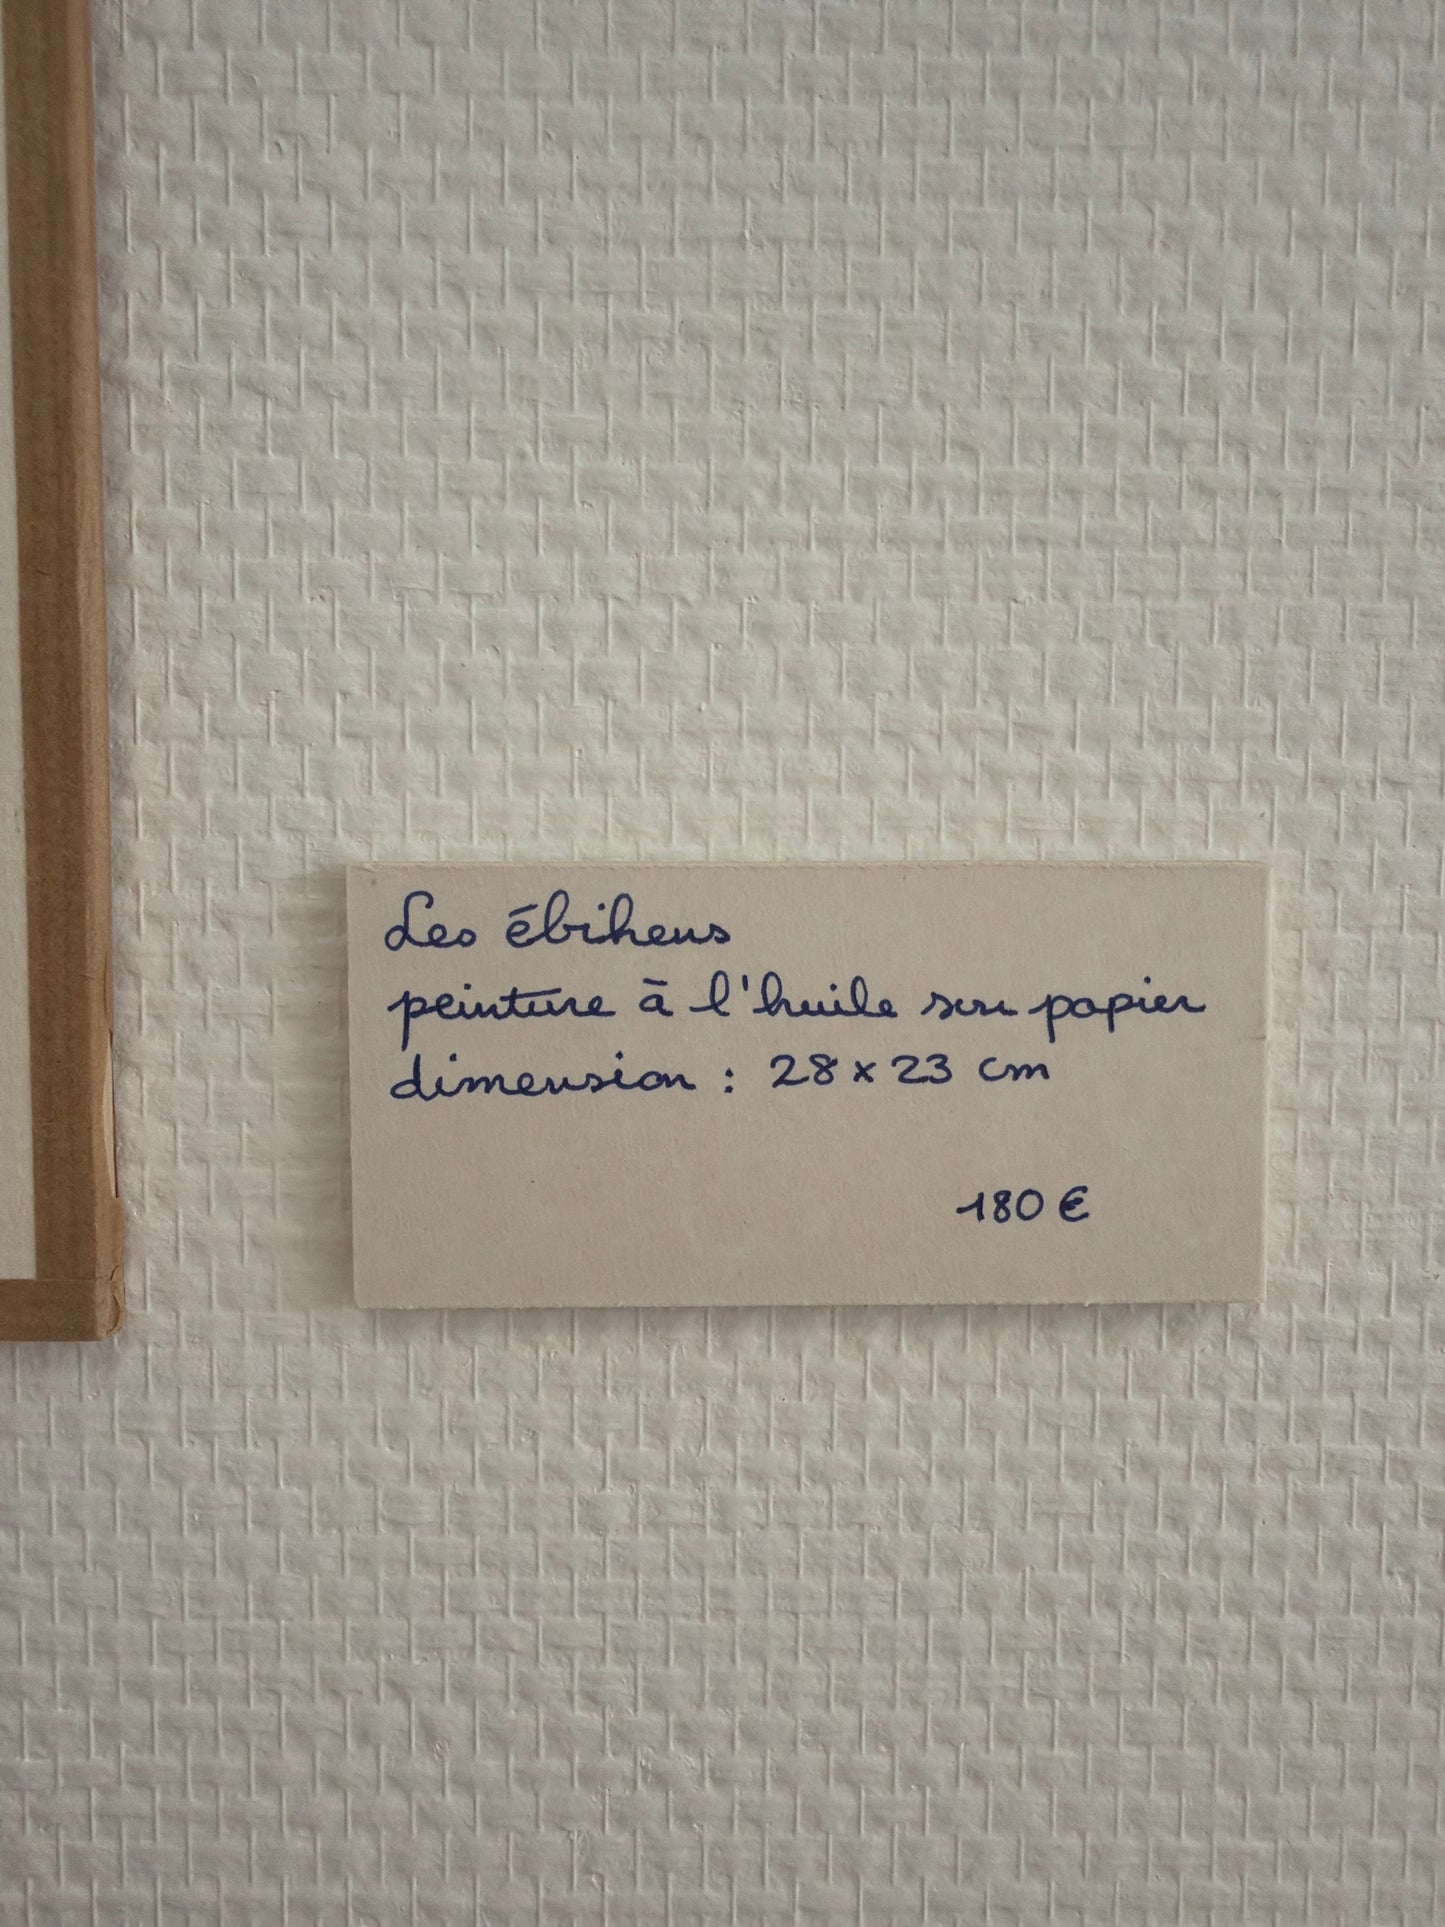 Les ébihens
peinture à l'huile sur papier
dimension : 28 x 23 cm
180 €